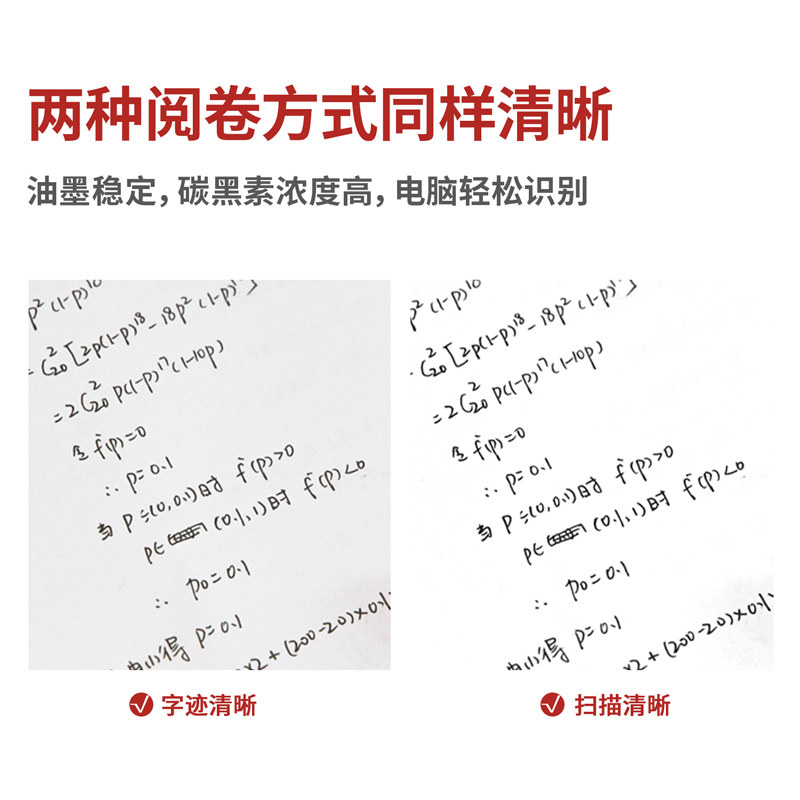 两种阅卷方式同样清晰
油墨稳定，碳黑素浓度高，电脑轻松识别
p²(1-p)¹⁸
= C²₂₀[2p(1-p)¹⁸-18p²(1-p)¹⁷]
=2C²₂₀ p(1-p)¹⁷(1-10p)
令f'(p)=0
∴ p=0.1
当 p=(0,0.1)时 f'(p)>0
p∈ (0.1,1)时 f'(p)<0
∴ p₀=0.1
由(1)得 p=0.1
×2+(200-20)×0.1
字迹清晰
p²(1-p)¹⁸
C²₂₀[2p(1-p)¹⁸-18p²(1-p)¹⁷]
=2C²₂₀ p(1-p)¹⁷(1-10p)
令f'(p)=0
∴ p=0.1
当 p=(0,0.1)时 f'(p)>0
p∈ (0.1,1)时 f'(p)<0
∴ p₀=0.1
由(1)得 p=0.1
×2+(200-20)×0.1
扫描清晰